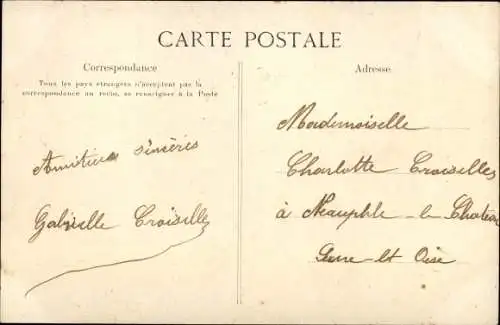 CARTE POSTALE
Correspondance
Tous les pays étrangers n'acceptent pas la
correspondance au recto, se renseigner à la Poste
Amitiés sincères
Gabrielle Croiselle
Adresse
Mademoiselle
Charlotte Croiselles
à Neauphle-le-Château
Seine-et-Oise